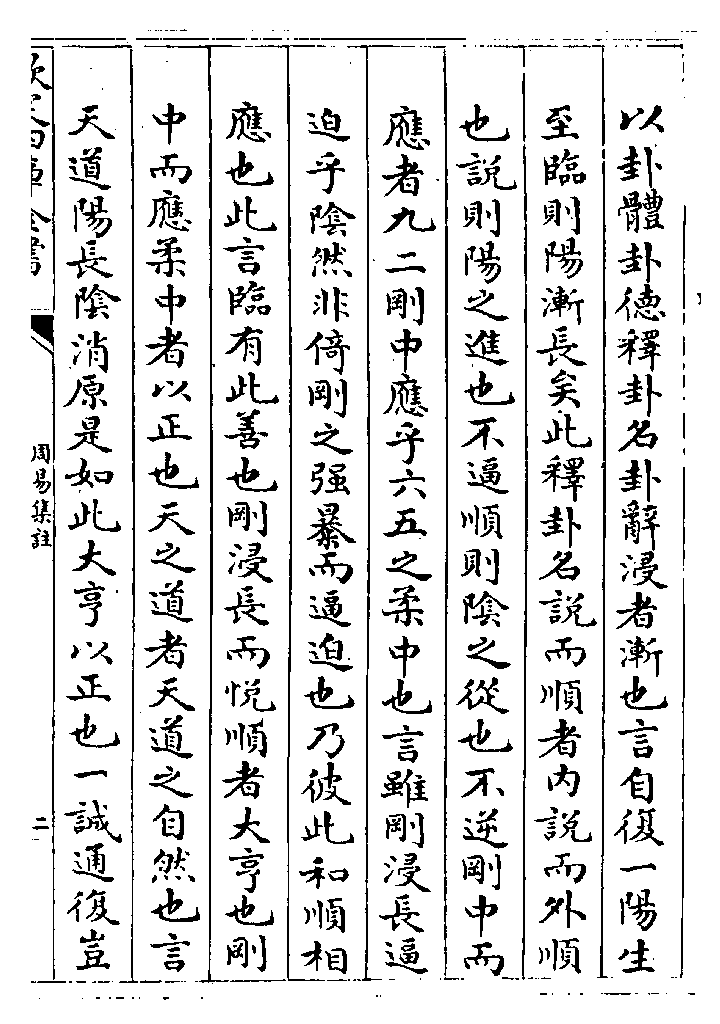 以卦體卦德釋卦名卦辭浸者漸也言自復一陽生
至臨則陽漸長矣此釋卦名說而順者内說而外順
也説則陽之進也不逼順則陰之從也不逆剛中而
應者九二剛中應乎六五之柔中也言雖剛浸長逼
迫乎陰然非倚剛之强暴而逼迫也乃彼此和順相
應也此言臨有此善也剛浸長而悦順者大亨也剛
中而應柔中者以正也天之道者天道之自然也言
天道陽長陰消原是如此大亨以正也一誠通復豈
欽定四庫全書
周易集註
二